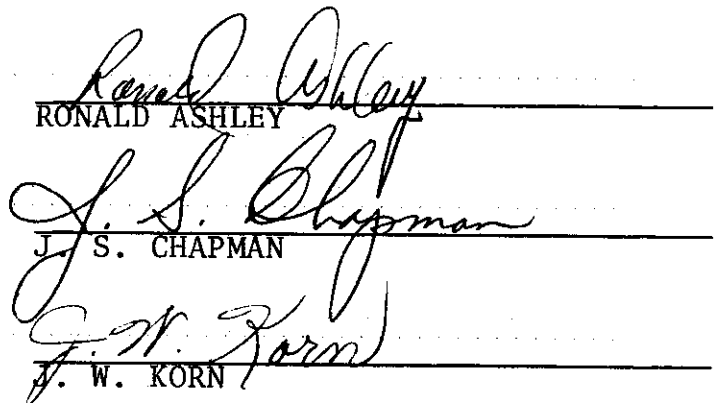 Ronald Ashley
RONALD ASHLEY
J. S. Chapman
J. S. CHAPMAN
J. W. Korn
J. W. KORN